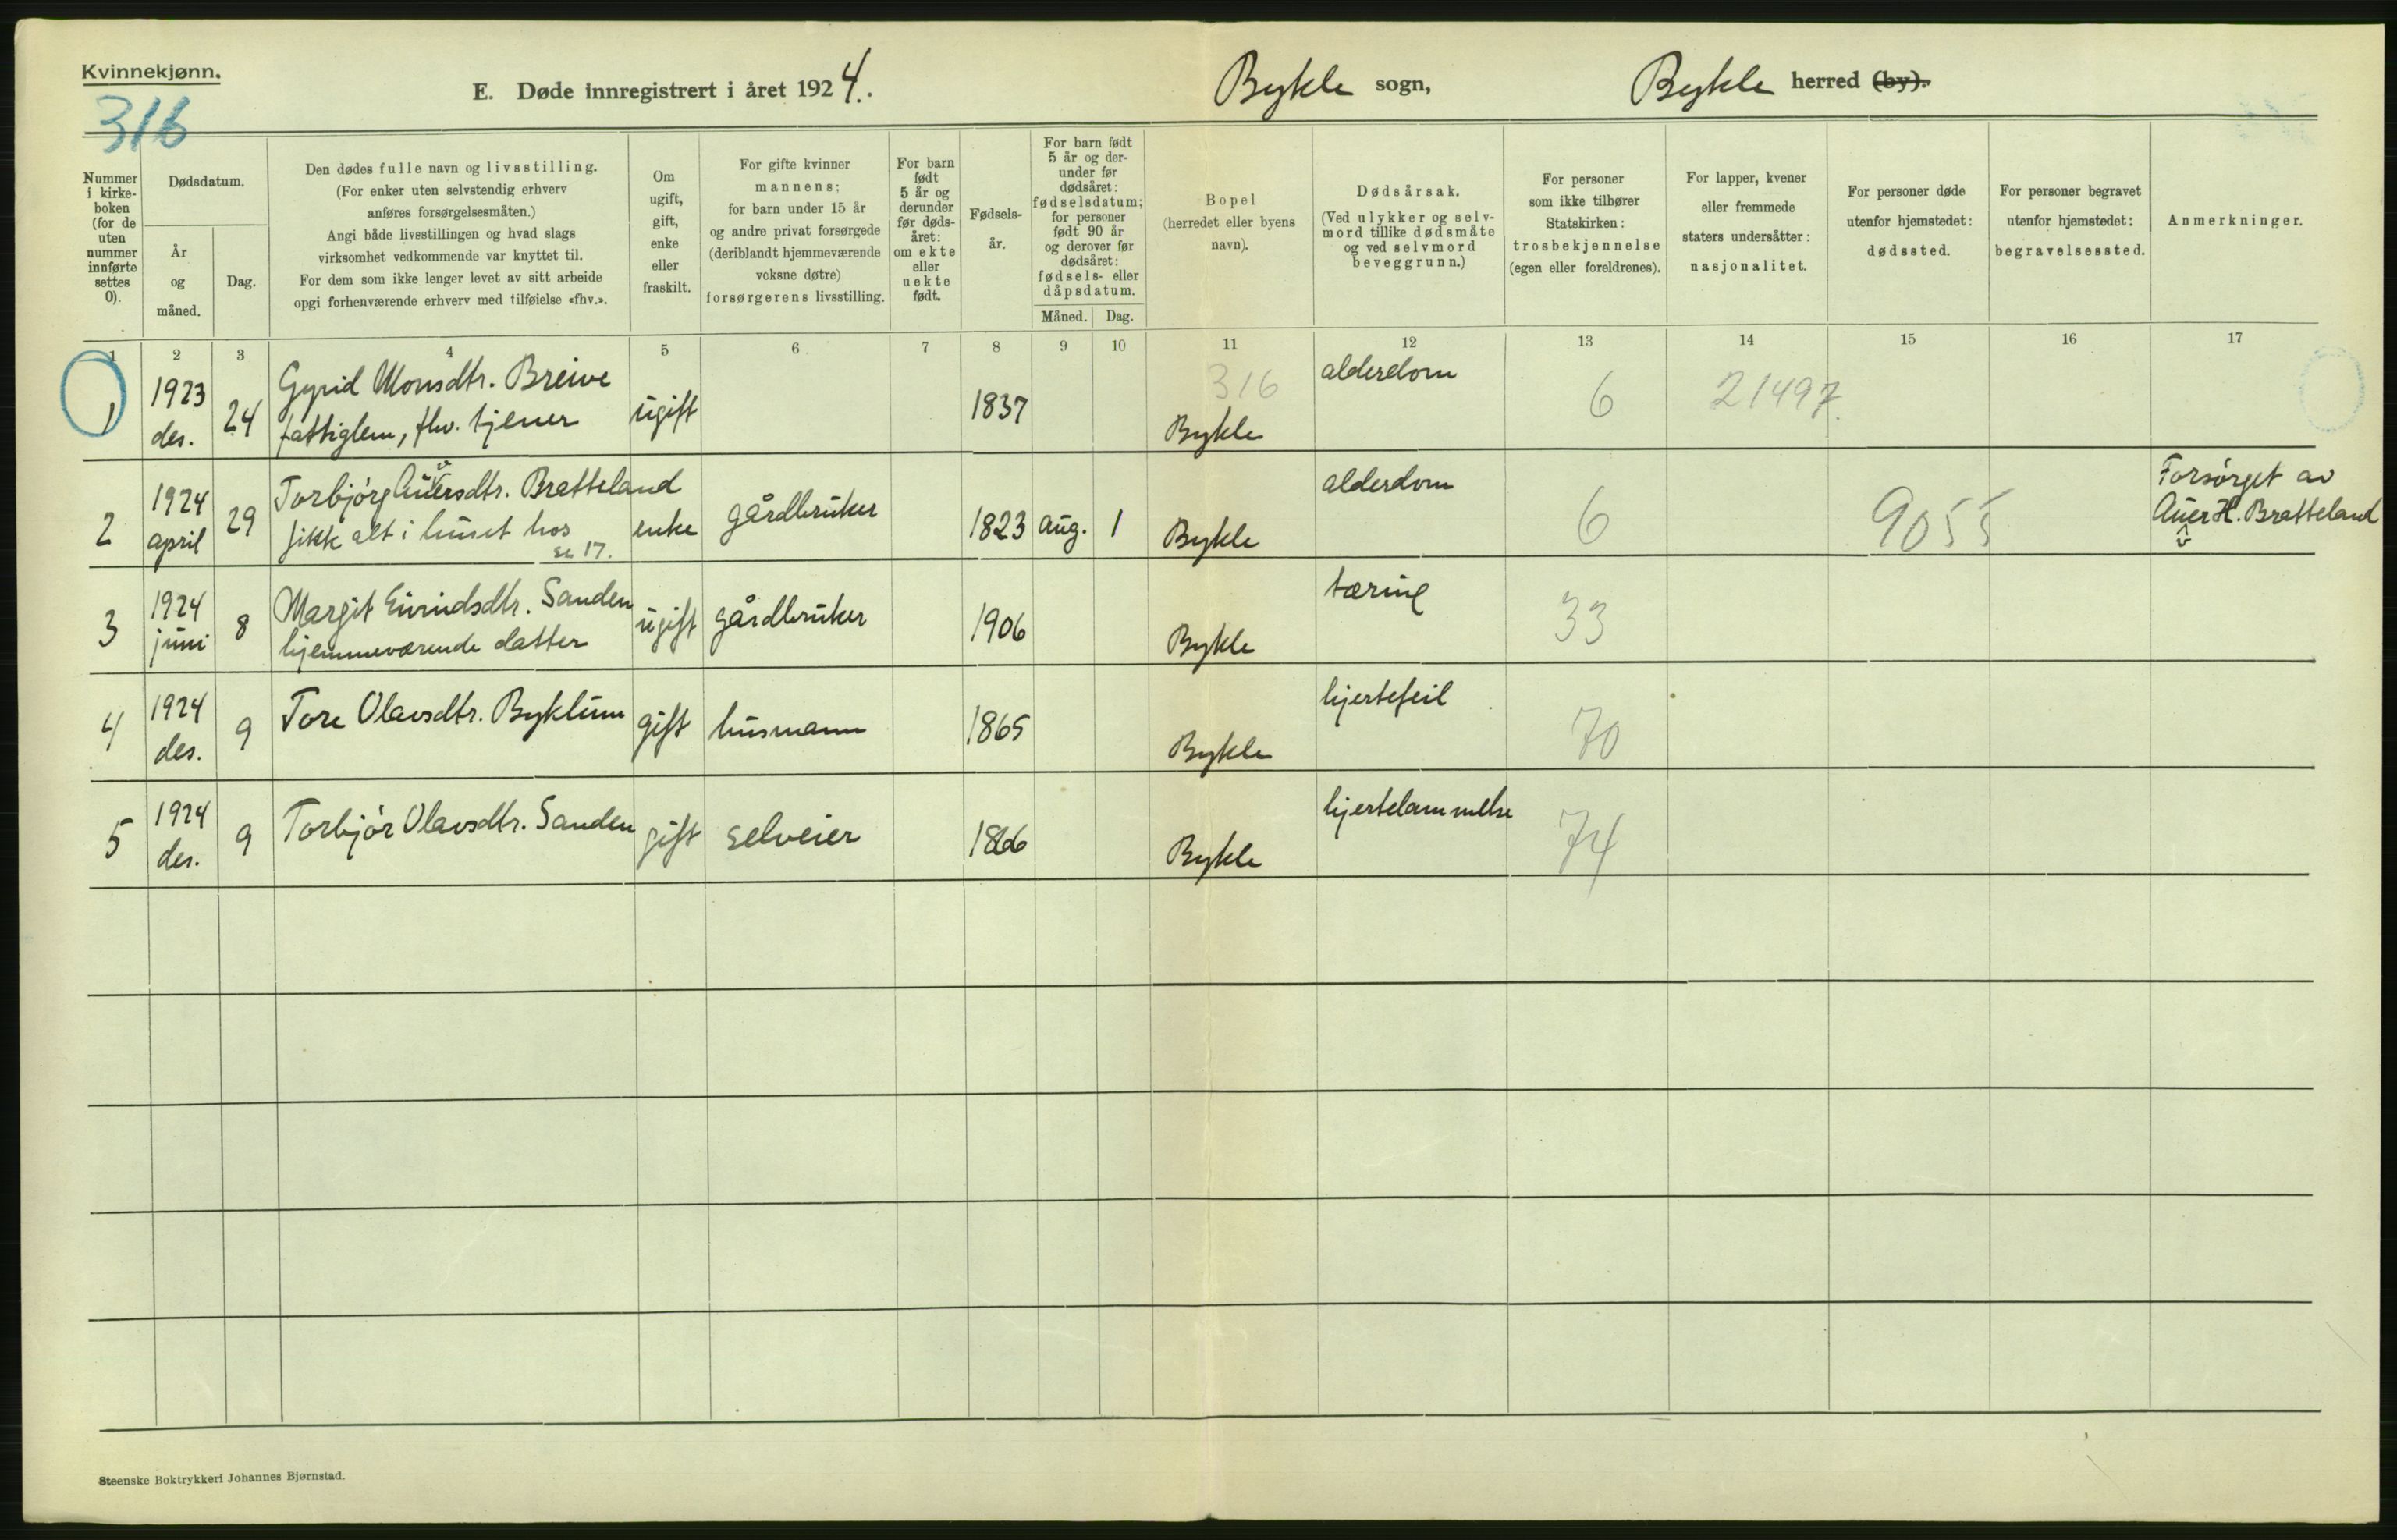 Kvinnekjønn.
316
E. Døde innregistrert i året 1924.
Bykle sogn,
Bykle herred (by).
Nummer i kirke- boken (for de uten nummer innførte settes 0).
Dødsdatum.
År og måned.
Dag.
Den dødes fulle navn og livsstilling.
(For enker uten selvstendig erhverv
anføres forsørgelsesmåten.)
Angi både livsstillingen og hvad slags
virksomhet vedkommende var knyttet til.
For dem som ikke lenger levet av sitt arbeide
opgi forhenværende erhverv med tilføielse «fhv.».
Om ugift, gift, enke eller fraskilt.
For gifte kvinner
mannens;
for barn under 15 år
og andre privat forsørgede
(deriblandt hjemmeværende
voksne døtre)
forsørgerens livsstilling.
For barn født 5 år og derunder før døds- året: om ekte eller uekte født.
Fødsels- år.
For barn født 5 år og der- under før dødsåret: fødselsdatum; for personer født 90 år og derover før dødsåret: fødsels- eller dåpsdatum.
Måned. Dag.
Bopel
(herredet eller byens
navn).
Dødsårsak.
(Ved ulykker og selv-
mord tillike dødsmåte
og ved selvmord
beveggrunn.)
For personer
som ikke tilhører
Statskirken:
trosbekjennelse
(egen eller foreldrenes).
For lapper, kvener
eller fremmede
staters undersåtter:
nasjonalitet.
For personer døde
utenfor hjemstedet:
dødssted.
For personer begravet
utenfor hjemstedet:
begravelsessted.
Anmerkninger.
1 2 3 4 5 6 7 8 9 10 11 12 13 14 15 16 17
1 1923 des. 24 Gyrid Monsdtr. Breive fattiglem, fhv. tjener ugift 1837 316 Bykle alderdom 6 21497.
2 1924 april 29 Torbjørg Auversdtr. Bratteland fikk alt i huset hos se 17. enke gårdbruker 1823 aug. 1 Bykle alderdom 6 9055 Forsørget av Auver H. Bratteland
3 1924 juni 8 Margit Eivindsdtr. Sanden hjemmeværende datter ugift gårdbruker 1906 Bykle tæring 33
4 1924 des. 9 Tore Olavsdtr. Byklum gift husmann 1865 Bykle hjertefeil 70
5 1924 des. 9 Torbjør Olavsdtr. Sanden gift selveier 1866 Bykle hjertelammelse 74
Steenske Boktrykkeri Johannes Bjørnstad.